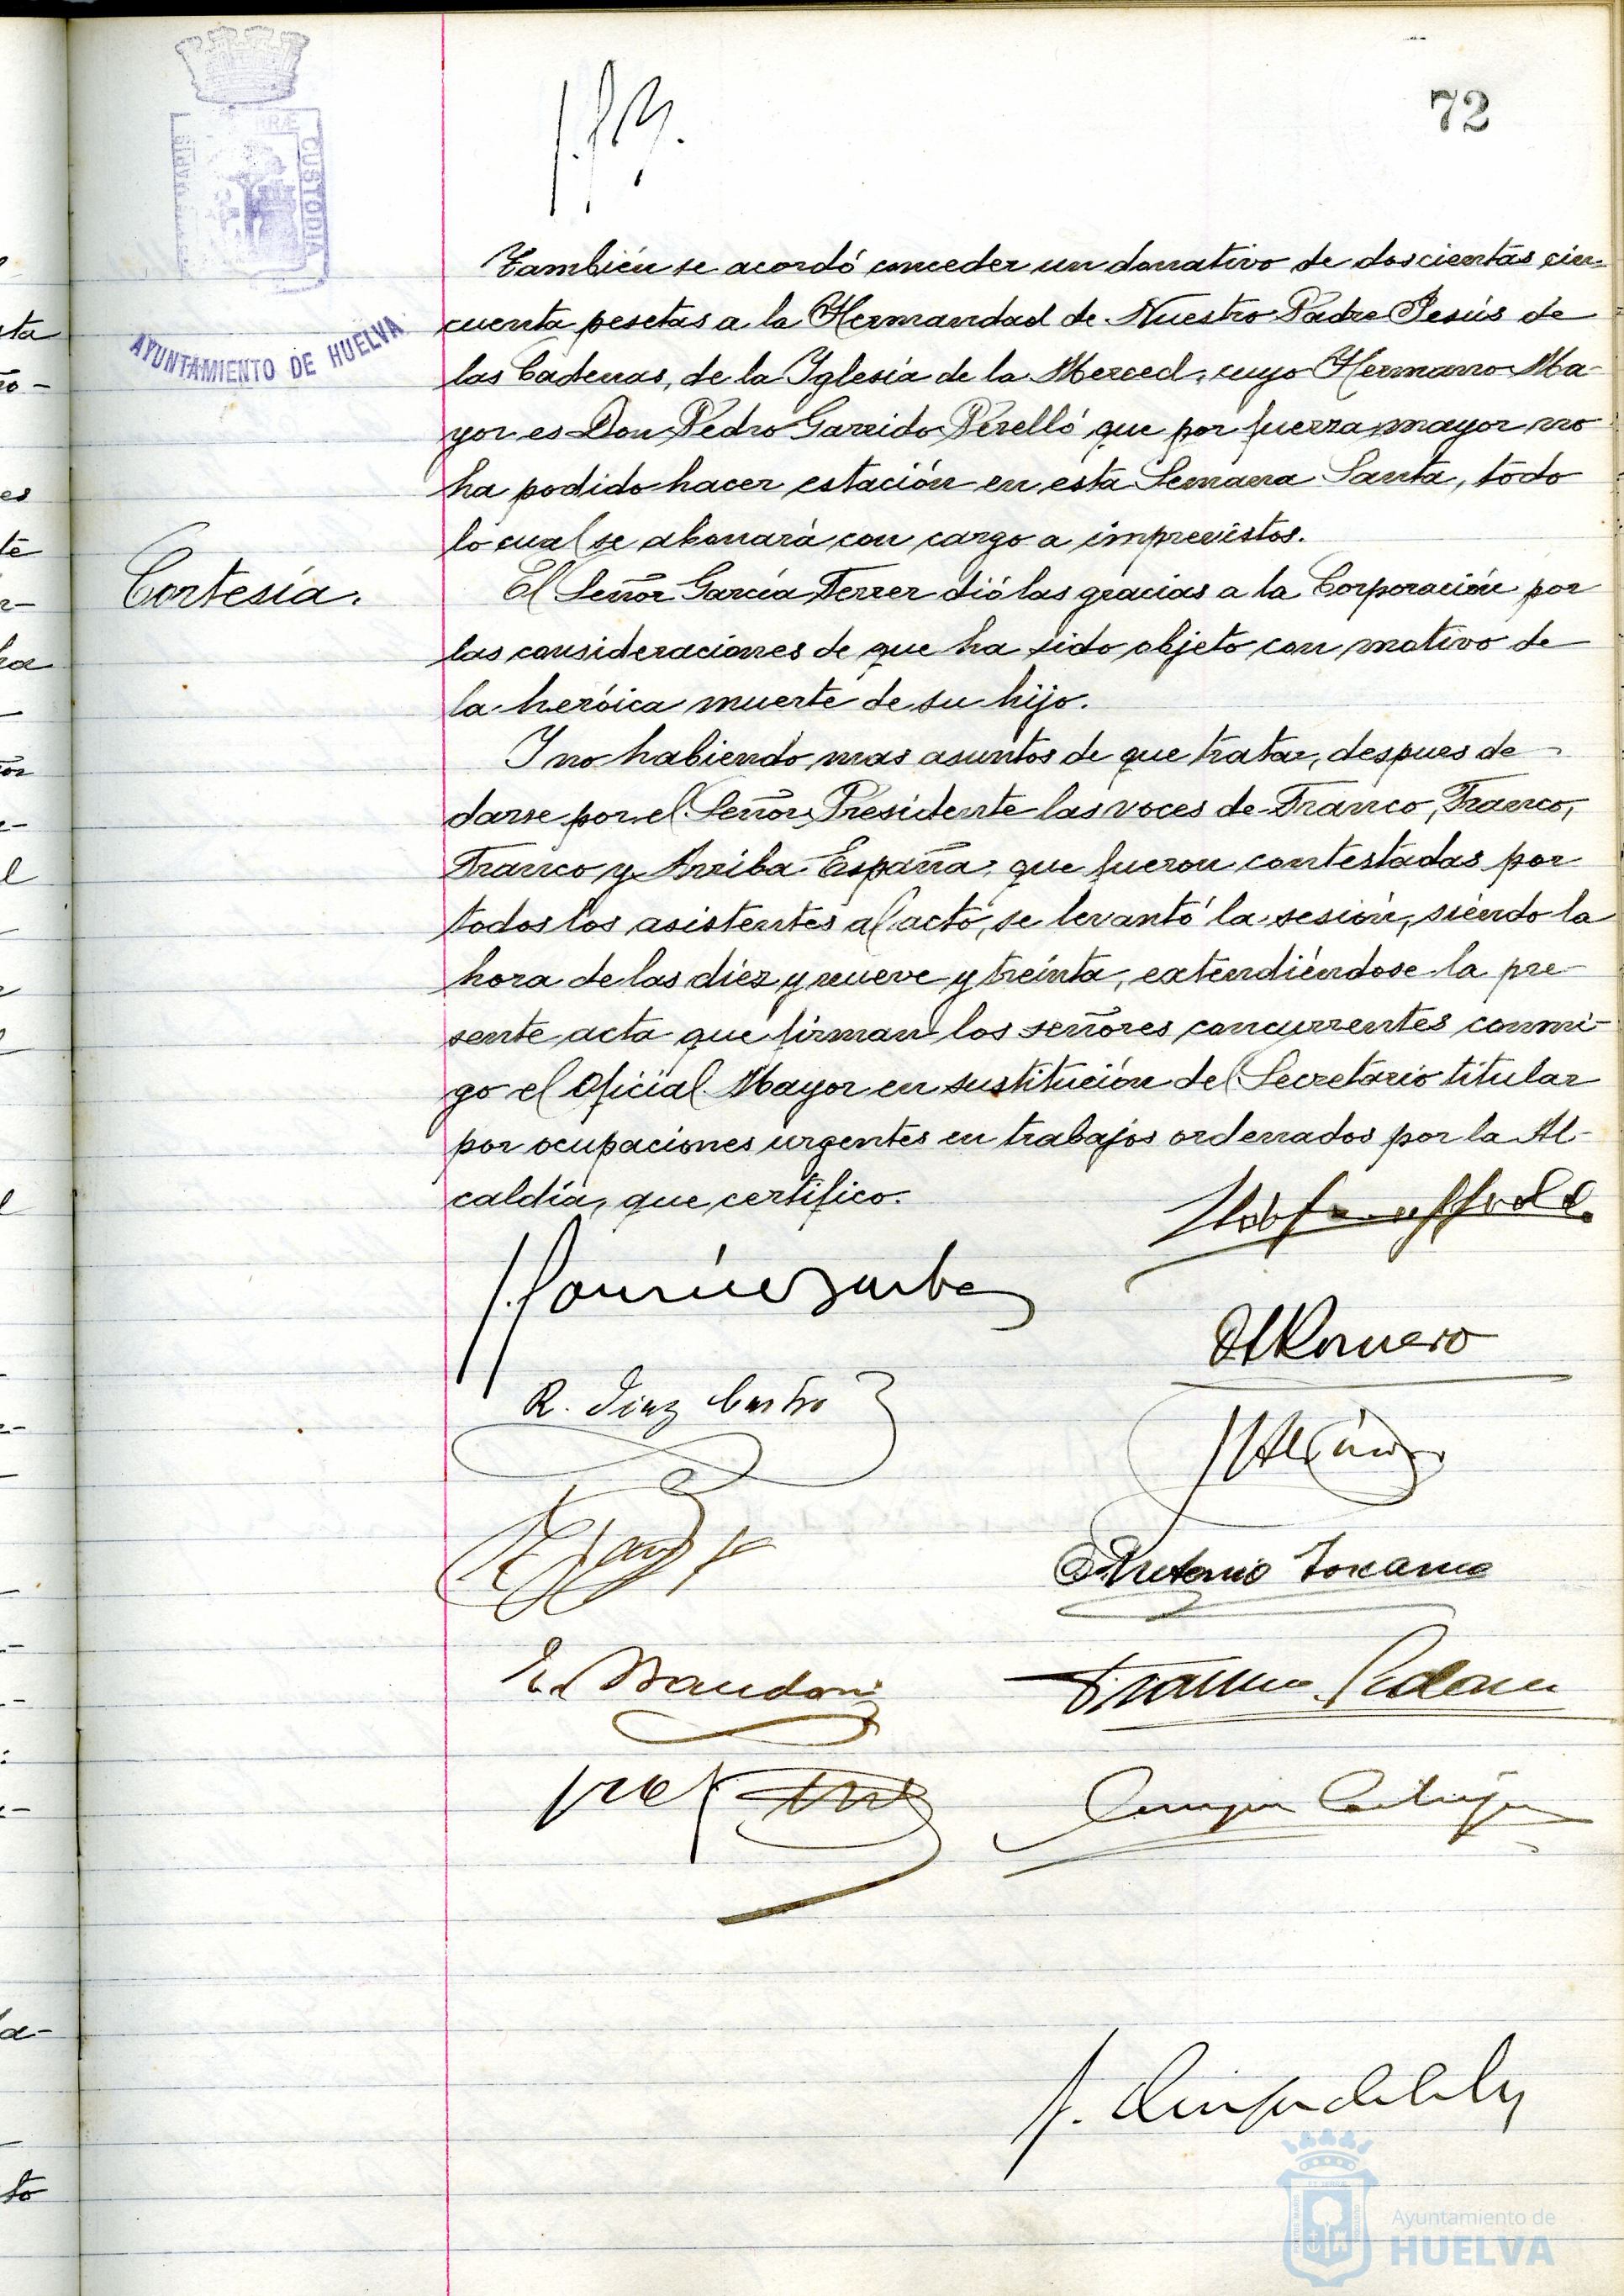 72
AYUNTAMIENTO DE HUELVA
CUSTODIA
También se acordó conceder un donativo de doscientas cin-
cuenta pesetas a la Hermandad de Nuestro Padre Jesús de
las Cadenas, de la Iglesia de la Merced, cuyo Hermano Ma-
yor es Don Pedro Garrido Perelló que por fuerza mayor no
ha podido hacer estación en esta Semana Santa, todo
lo cual se abonará con cargo a imprevistos.
Cortesía.
El Señor García Ferrer dió las gracias a la Corporación por
las consideraciones de que ha sido objeto con motivo de
la heróica muerte de su hijo.
Y no habiendo mas asuntos de que tratar, despues de
darse por el Señor Presidente las voces de Franco, Franco,
Franco y Arriba España, que fueron contestadas por
todos los asistentes al acto, se levantó la sesión, siendo la
hora de las diez y nueve y treinta, extendiéndose la pre-
sente acta que firman los señores concurrentes conmi-
go el Oficial Mayor en sustitución del Secretario titular
por ocupaciones urgentes en trabajos ordenados por la Al-
caldía, que certifico.
Romero
R. Diaz Castro
Antonio Toscano
Ayuntamiento de
HUELVA